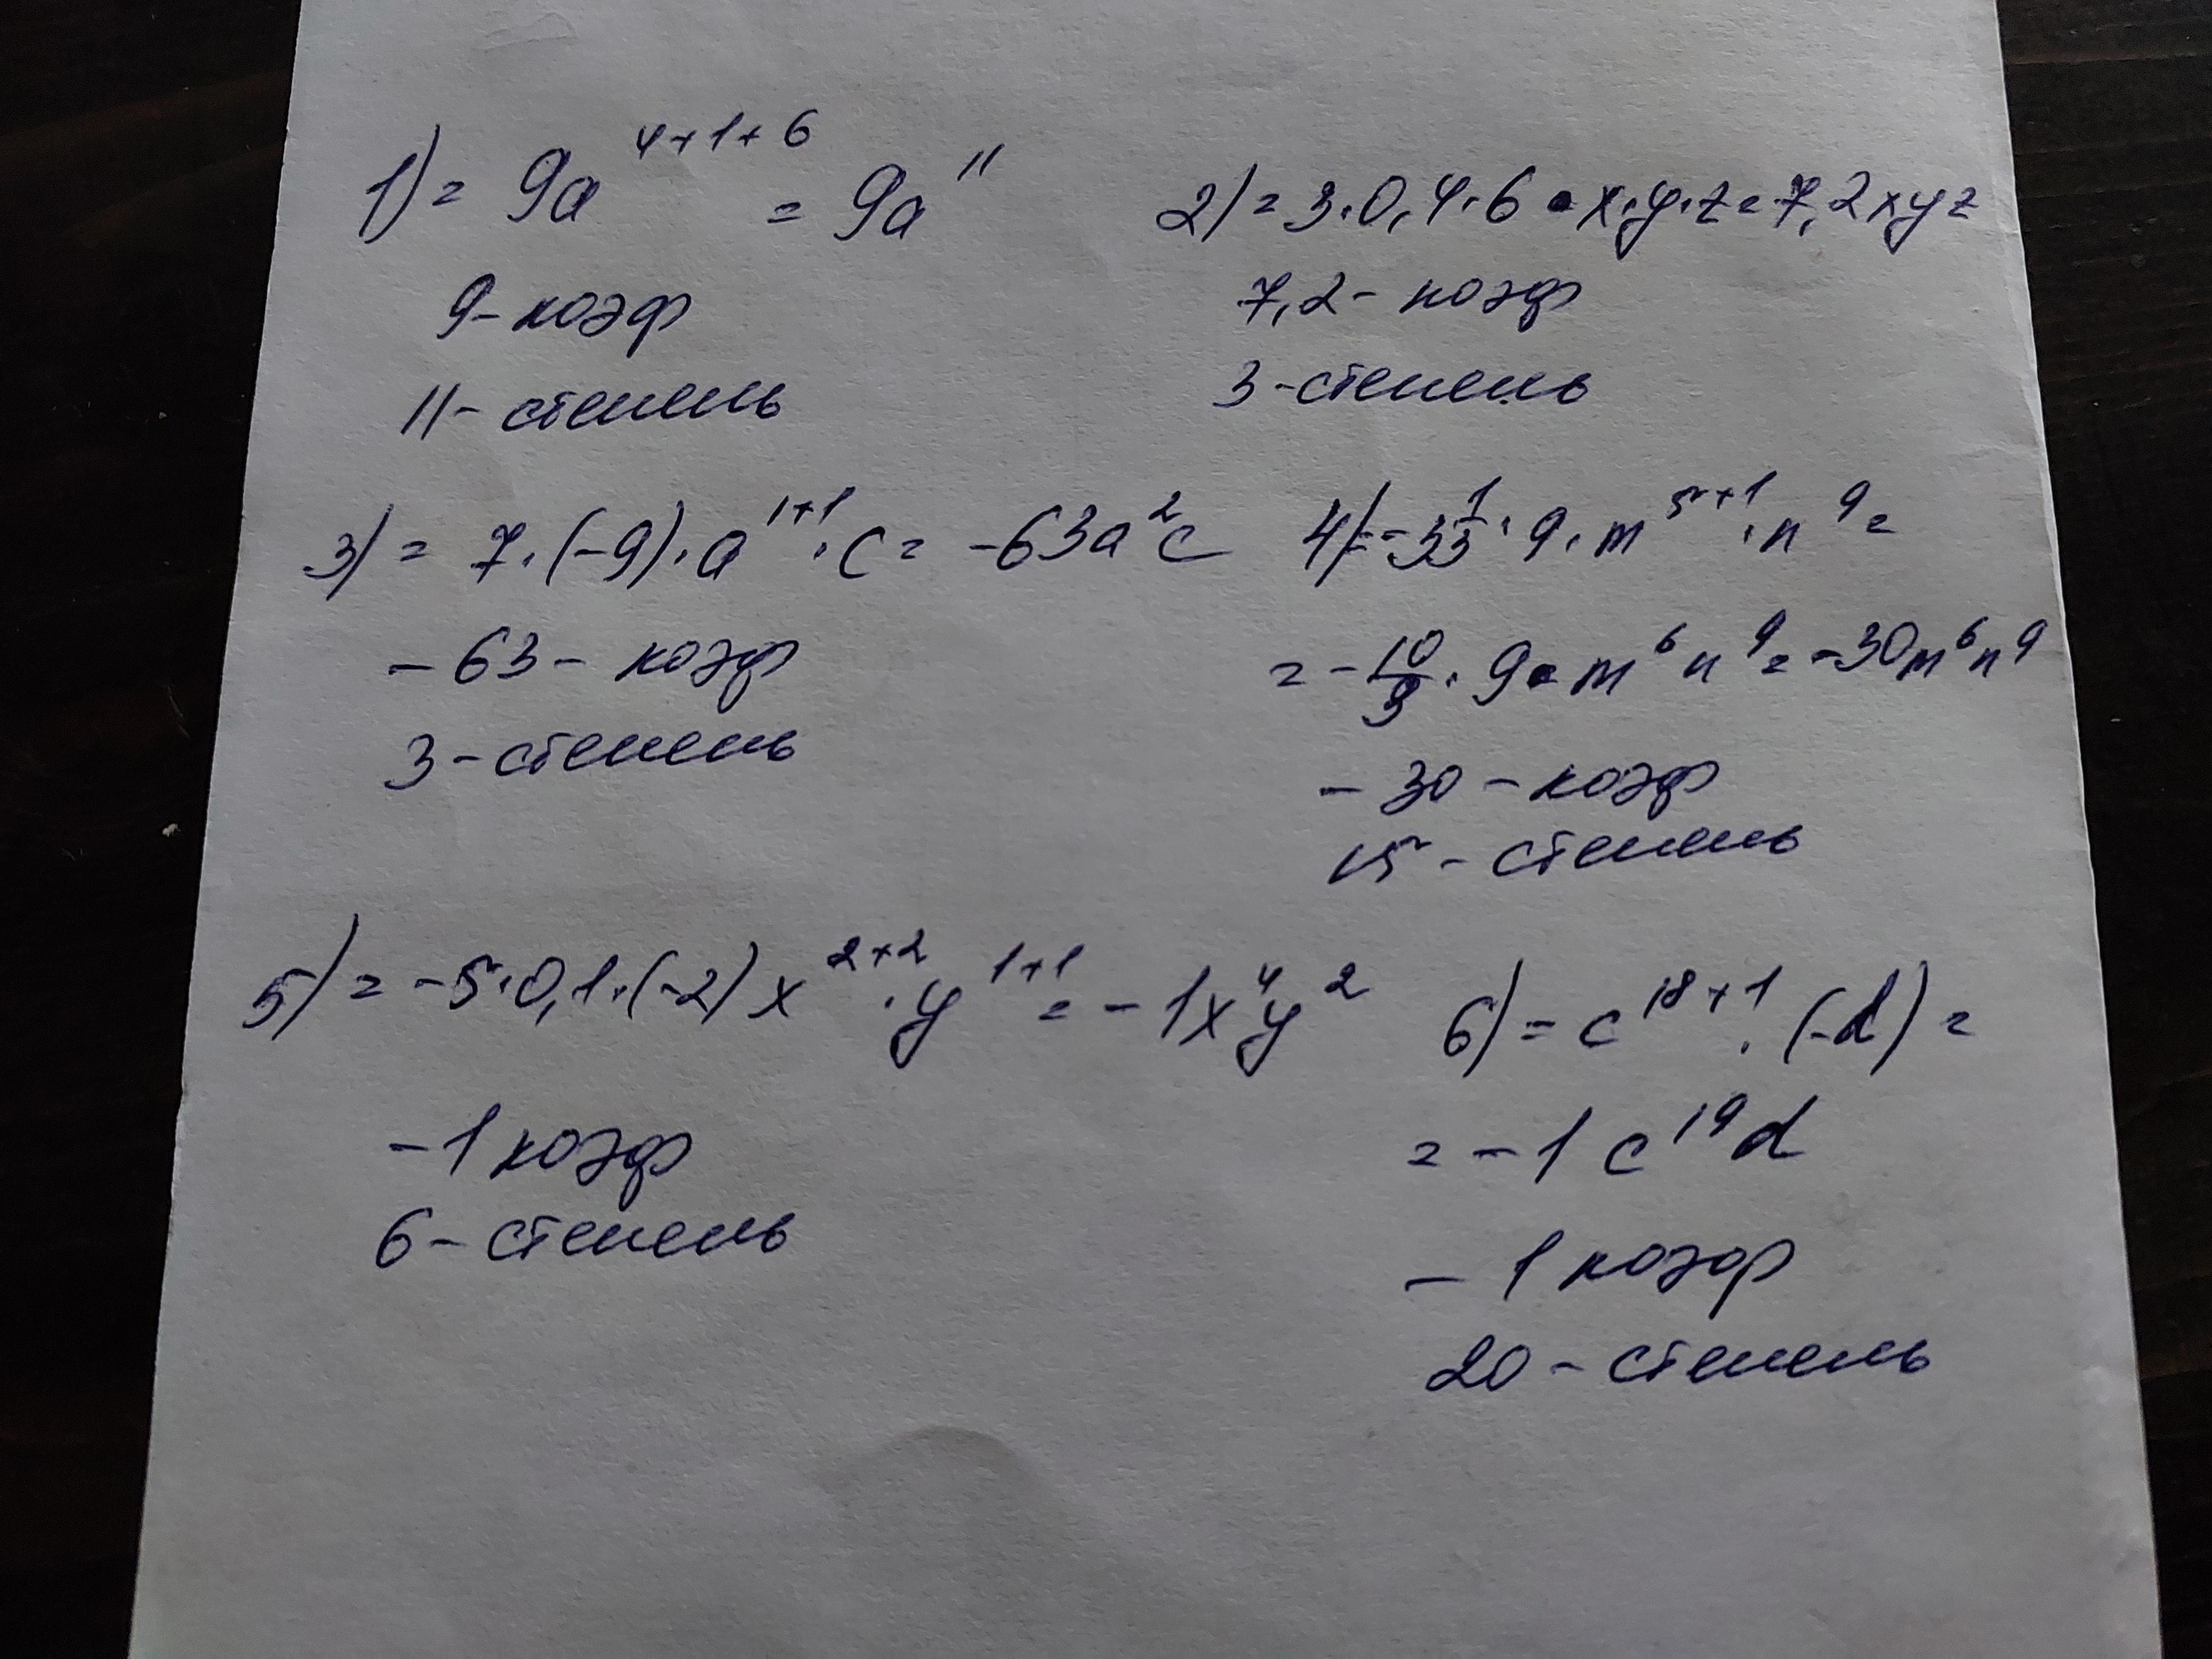 1) = 9a^{4+1+6} = 9a^{11}
9 - коэф
11 - степень
2) = 3·0,4·6·x·y·z = 7,2xyz
7,2 - коэф
3 - степень
3) = 7·(-9)·a^{1+1}·c = -63a^2c
-63 - коэф
3 - степень
4) = -3\frac{1}{3}·9·m^{5+1}·n^9 =
= -\frac{10}{3}·9·m^6n^9 = -30m^6n^9
-30 - коэф
15 - степень
5) = -5·0,1·(-2)x^{2+2}·y^{1+1} = -1x^4y^2
-1 коэф
6 - степень
6) = c^{18+1}·(-d) =
= -1c^{19}d
-1 коэф
20 - степень